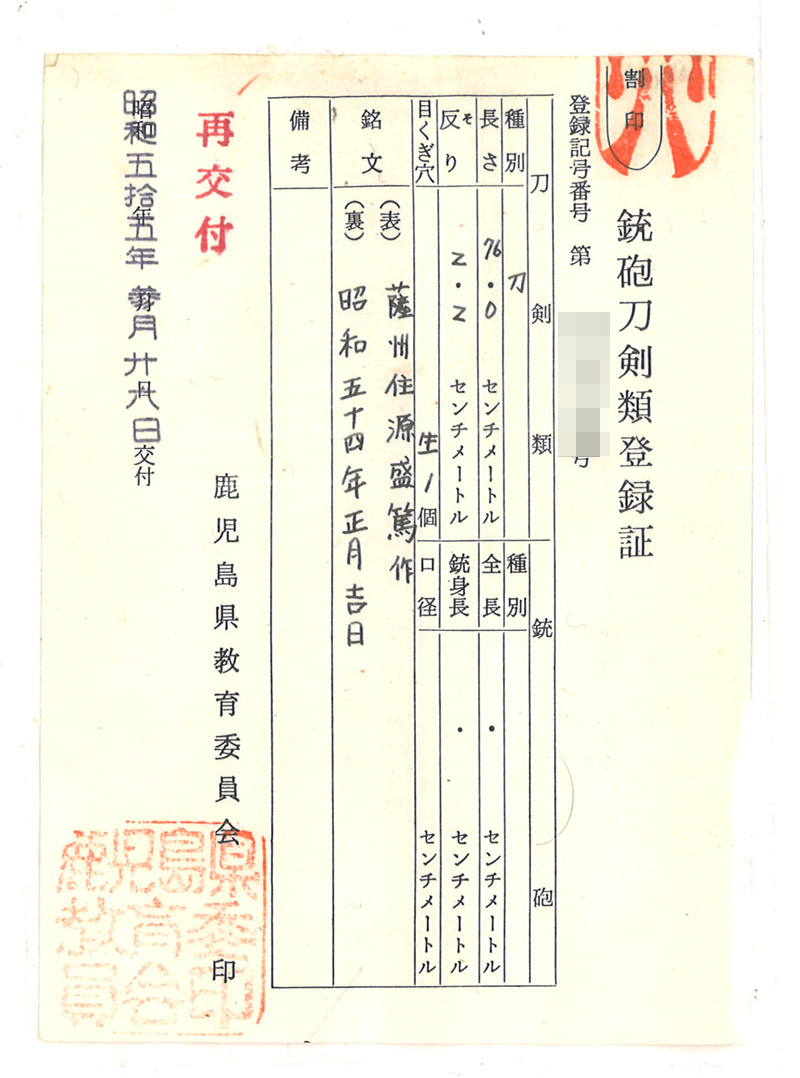 割印
銃砲刀剣類登録証
登録記号番号 第 号
刀剣類
種別 刀
長さ 76.0 センチメートル
反り そ 2.2 センチメートル
目くぎ穴 生1個
銃砲
種別
全長 ・ センチメートル
銃身長 ・ センチメートル
口径 センチメートル
銘文
(表) 薩州住源盛篤作
(裏) 昭和五十四年正月吉日
備考
再交付
昭和五拾五年 月廿九日交付
鹿児島県教育委員会 印
鹿児島県教育委員会印